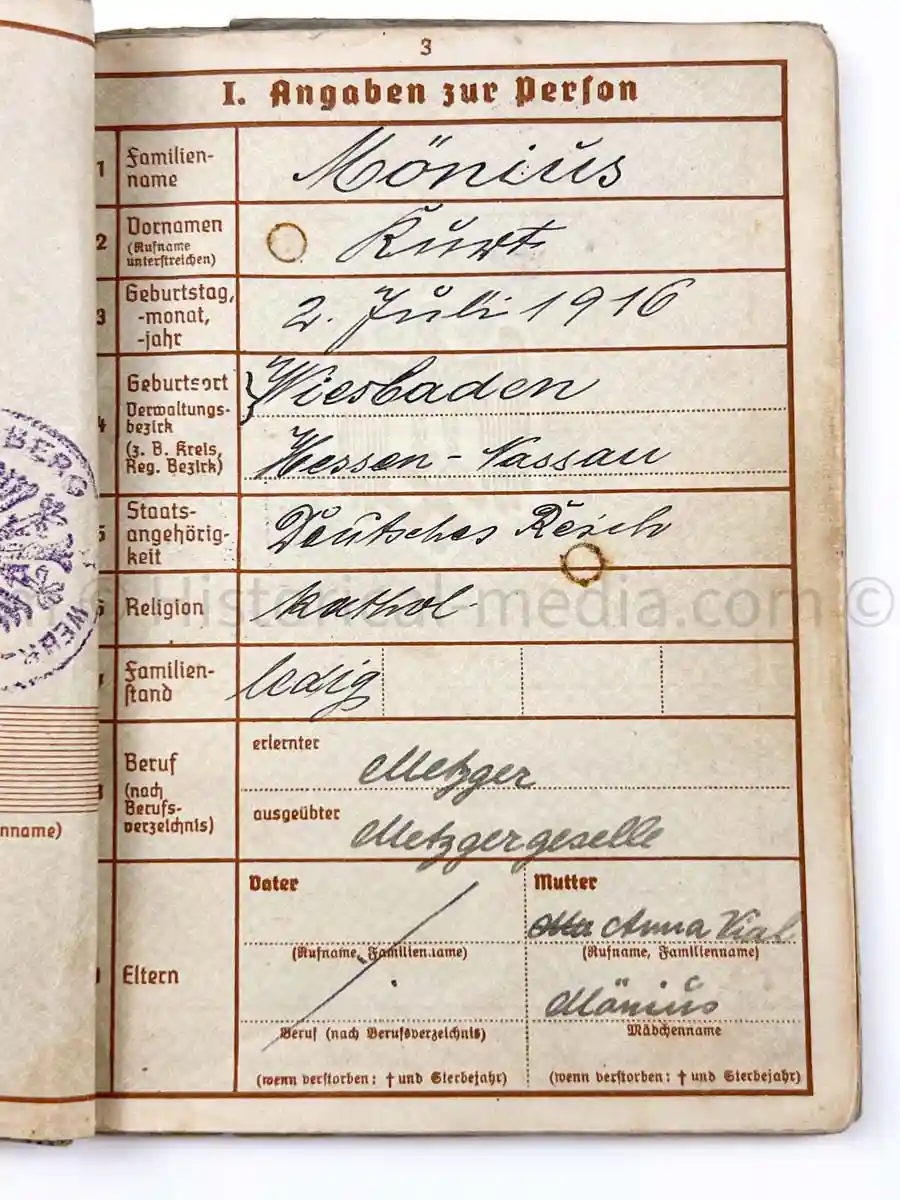 3
I. Angaben zur Person
1 Familien-
name
Mönius
2 Vornamen
(Rufname
unterstreichen)
Kurt
3 Geburtstag,
-monat,
-jahr
2. Juli 1916
4 Geburtsort
Verwaltungs-
bezirk
(z. B. Kreis,
Reg. Bezirk)
Wiesbaden
Hessen-Nassau
5 Staats-
angehörig-
keit
Deutsches Reich
6 Religion
kathol.
Familien-
stand
ledig
Beruf
(nach
Berufs-
verzeichnis)
erlernter
Metzger
ausgeübter
Metzgergeselle
Eltern
Vater
(Rufname, Familienname)
Beruf (nach Berufsverzeichnis)
(wenn verstorben: † und Sterbejahr)
Mutter
Anna Vial
(Rufname, Familienname)
Mönius
Mädchenname
(wenn verstorben: † und Sterbejahr)
BERG
WEHR-
nname)
© Historical-media.com ©